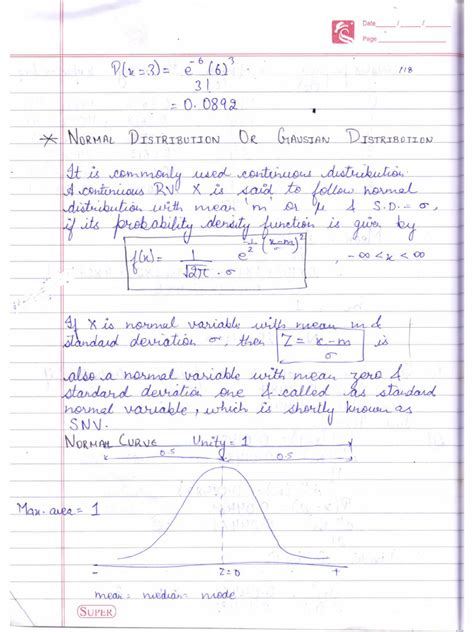 Date
Page
P(x=3) = e^-6 (6)^3 / 3!
118
= 0.0892
* NORMAL DISTRIBUTION OR GAUSIAN DISTRIBUTION
It is commonly used continuous distribution.
A continuous RV X is said to follow normal
distribution with mean 'm' or μ & S.D. = σ,
if its probability density function is given by
f(x) = 1/√2π · σ e^-1/2 (x-m/σ)^2 , -∞ < x < ∞
If X is normal variable with mean m &
standard deviation σ, then Z = x-m/σ is
also a normal variable with mean zero &
standard deviation one & called as standard
normal variable, which is shortly known as
SNV.
NORMAL CURVE Unity = 1
0.5 0.5
Max. area = 1
- Z=0 +
mean = median = mode
SUPER